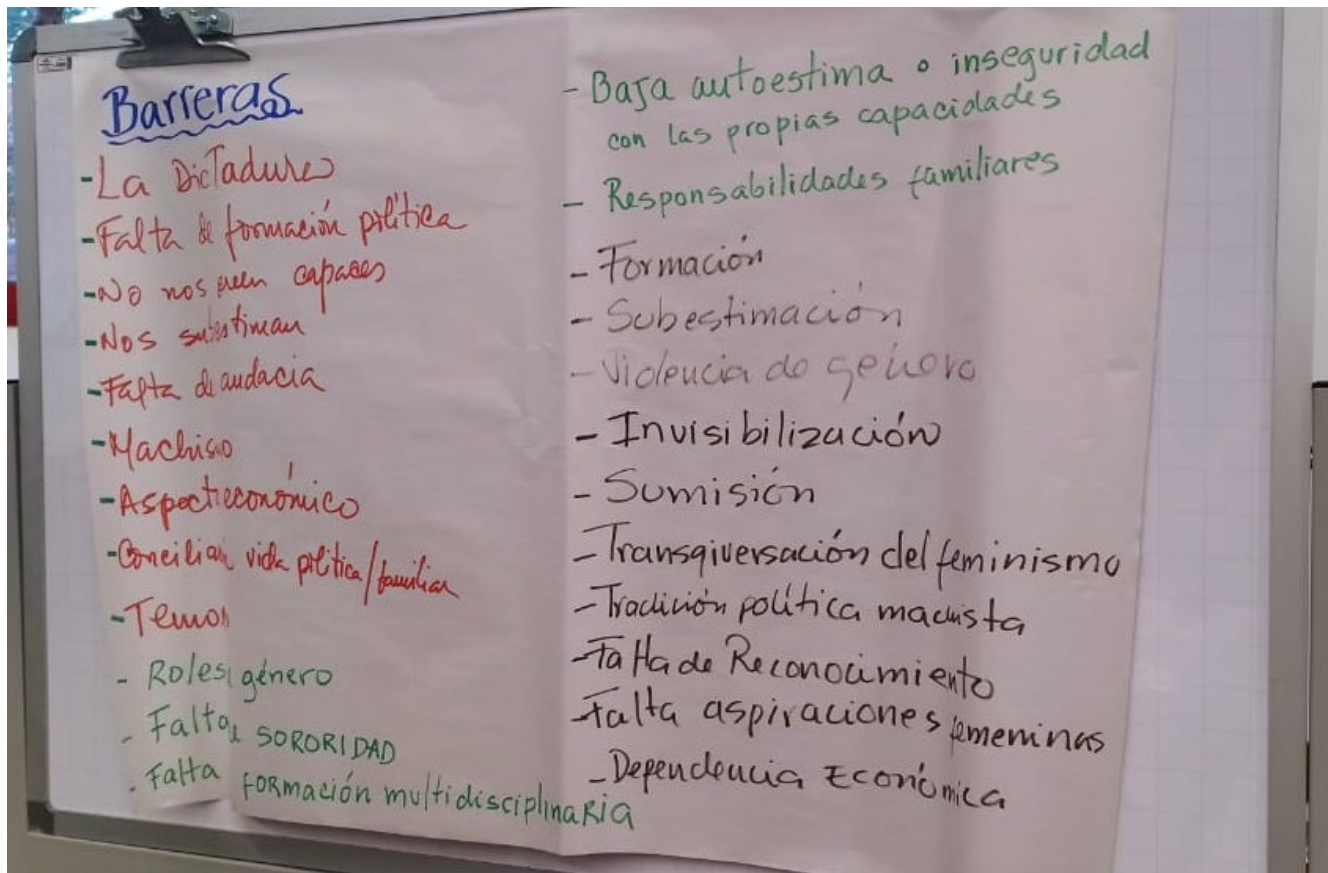 Barreras
- La Dictadura
- Falta de formación política
- No nos creen capaces
- Nos subestiman
- Falta de audacia
- Machismo
- Aspecto económico
- Conciliar vida política/familiar
- Temor
- Roles género
- Falta SORORIDAD
- Falta FORMACIÓN multidisciplinaRia
- Baja autoestima o inseguridad
con las propias capacidades
- Responsabilidades familiares
- Formación
- Subestimación
- Violencia de género
- Invisibilización
- Sumisión
- Transgiversación del feminismo
- Tradición política machista
- Falta de Reconocimiento
- Falta aspiraciones femeninas
- Dependencia Económica